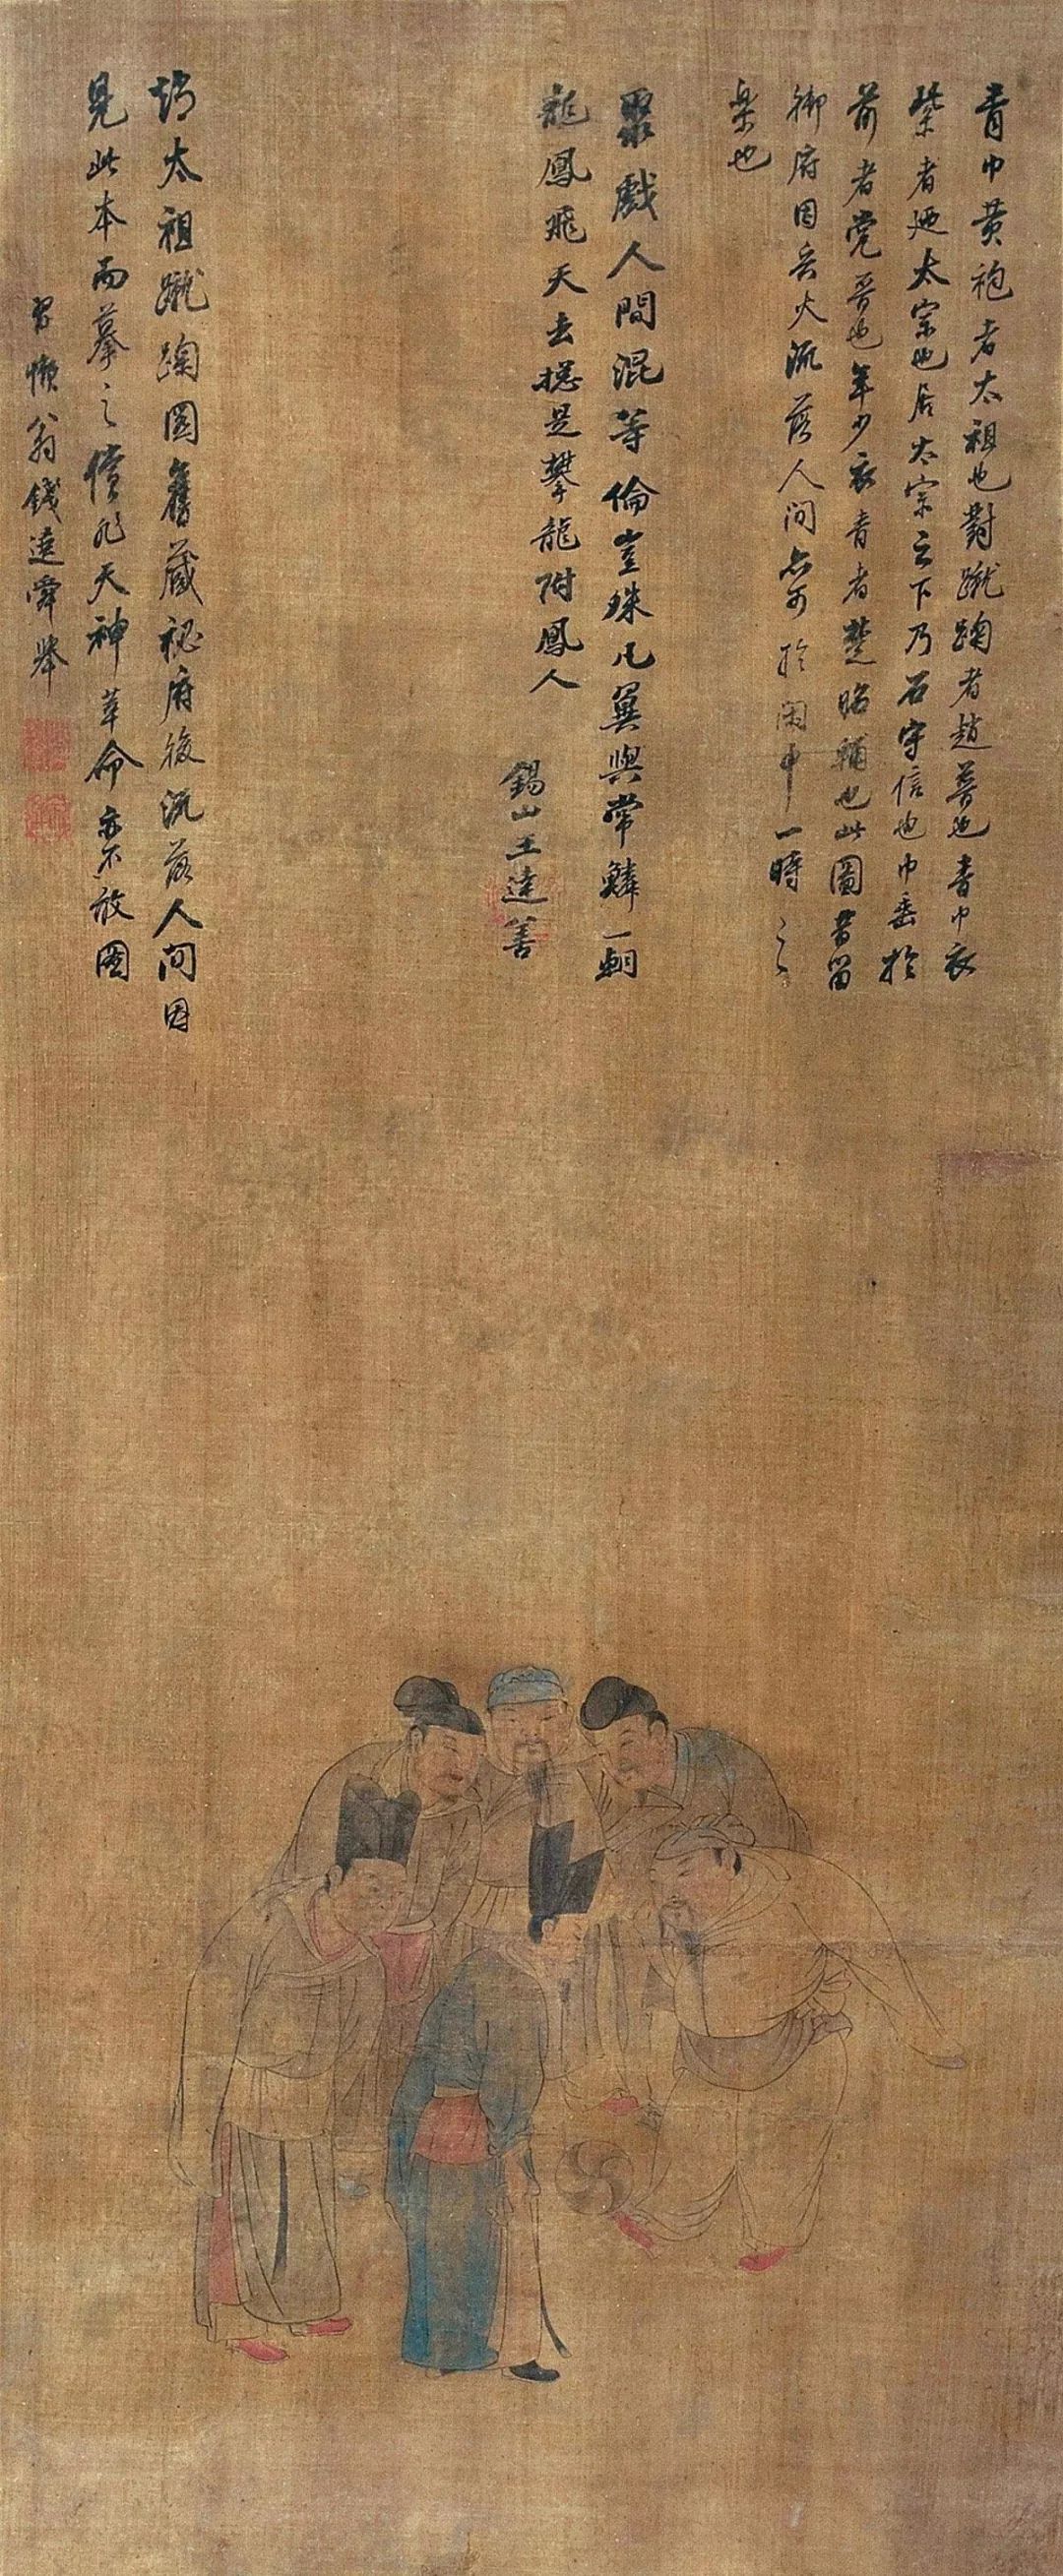 青巾黄袍者太祖也對蹴踘者趙普也青巾衣
紫者廼太宗也居太宗之下乃石守信也巾垂於
前者党晋也年少衣青者楚昭輔也此圖昔留
御府因兵火流落人间亦可於闲中一時之
樂也
聚戲人間混等倫豈殊凡翼與常鱗一朝
龍鳳飛天去揔是攀龍附鳳人
錫山王達善
太祖蹴踘圖舊藏祕府後流落人间因
見此本而摹之儻非天神革命亦不敢圖
習懒翁錢選舜舉